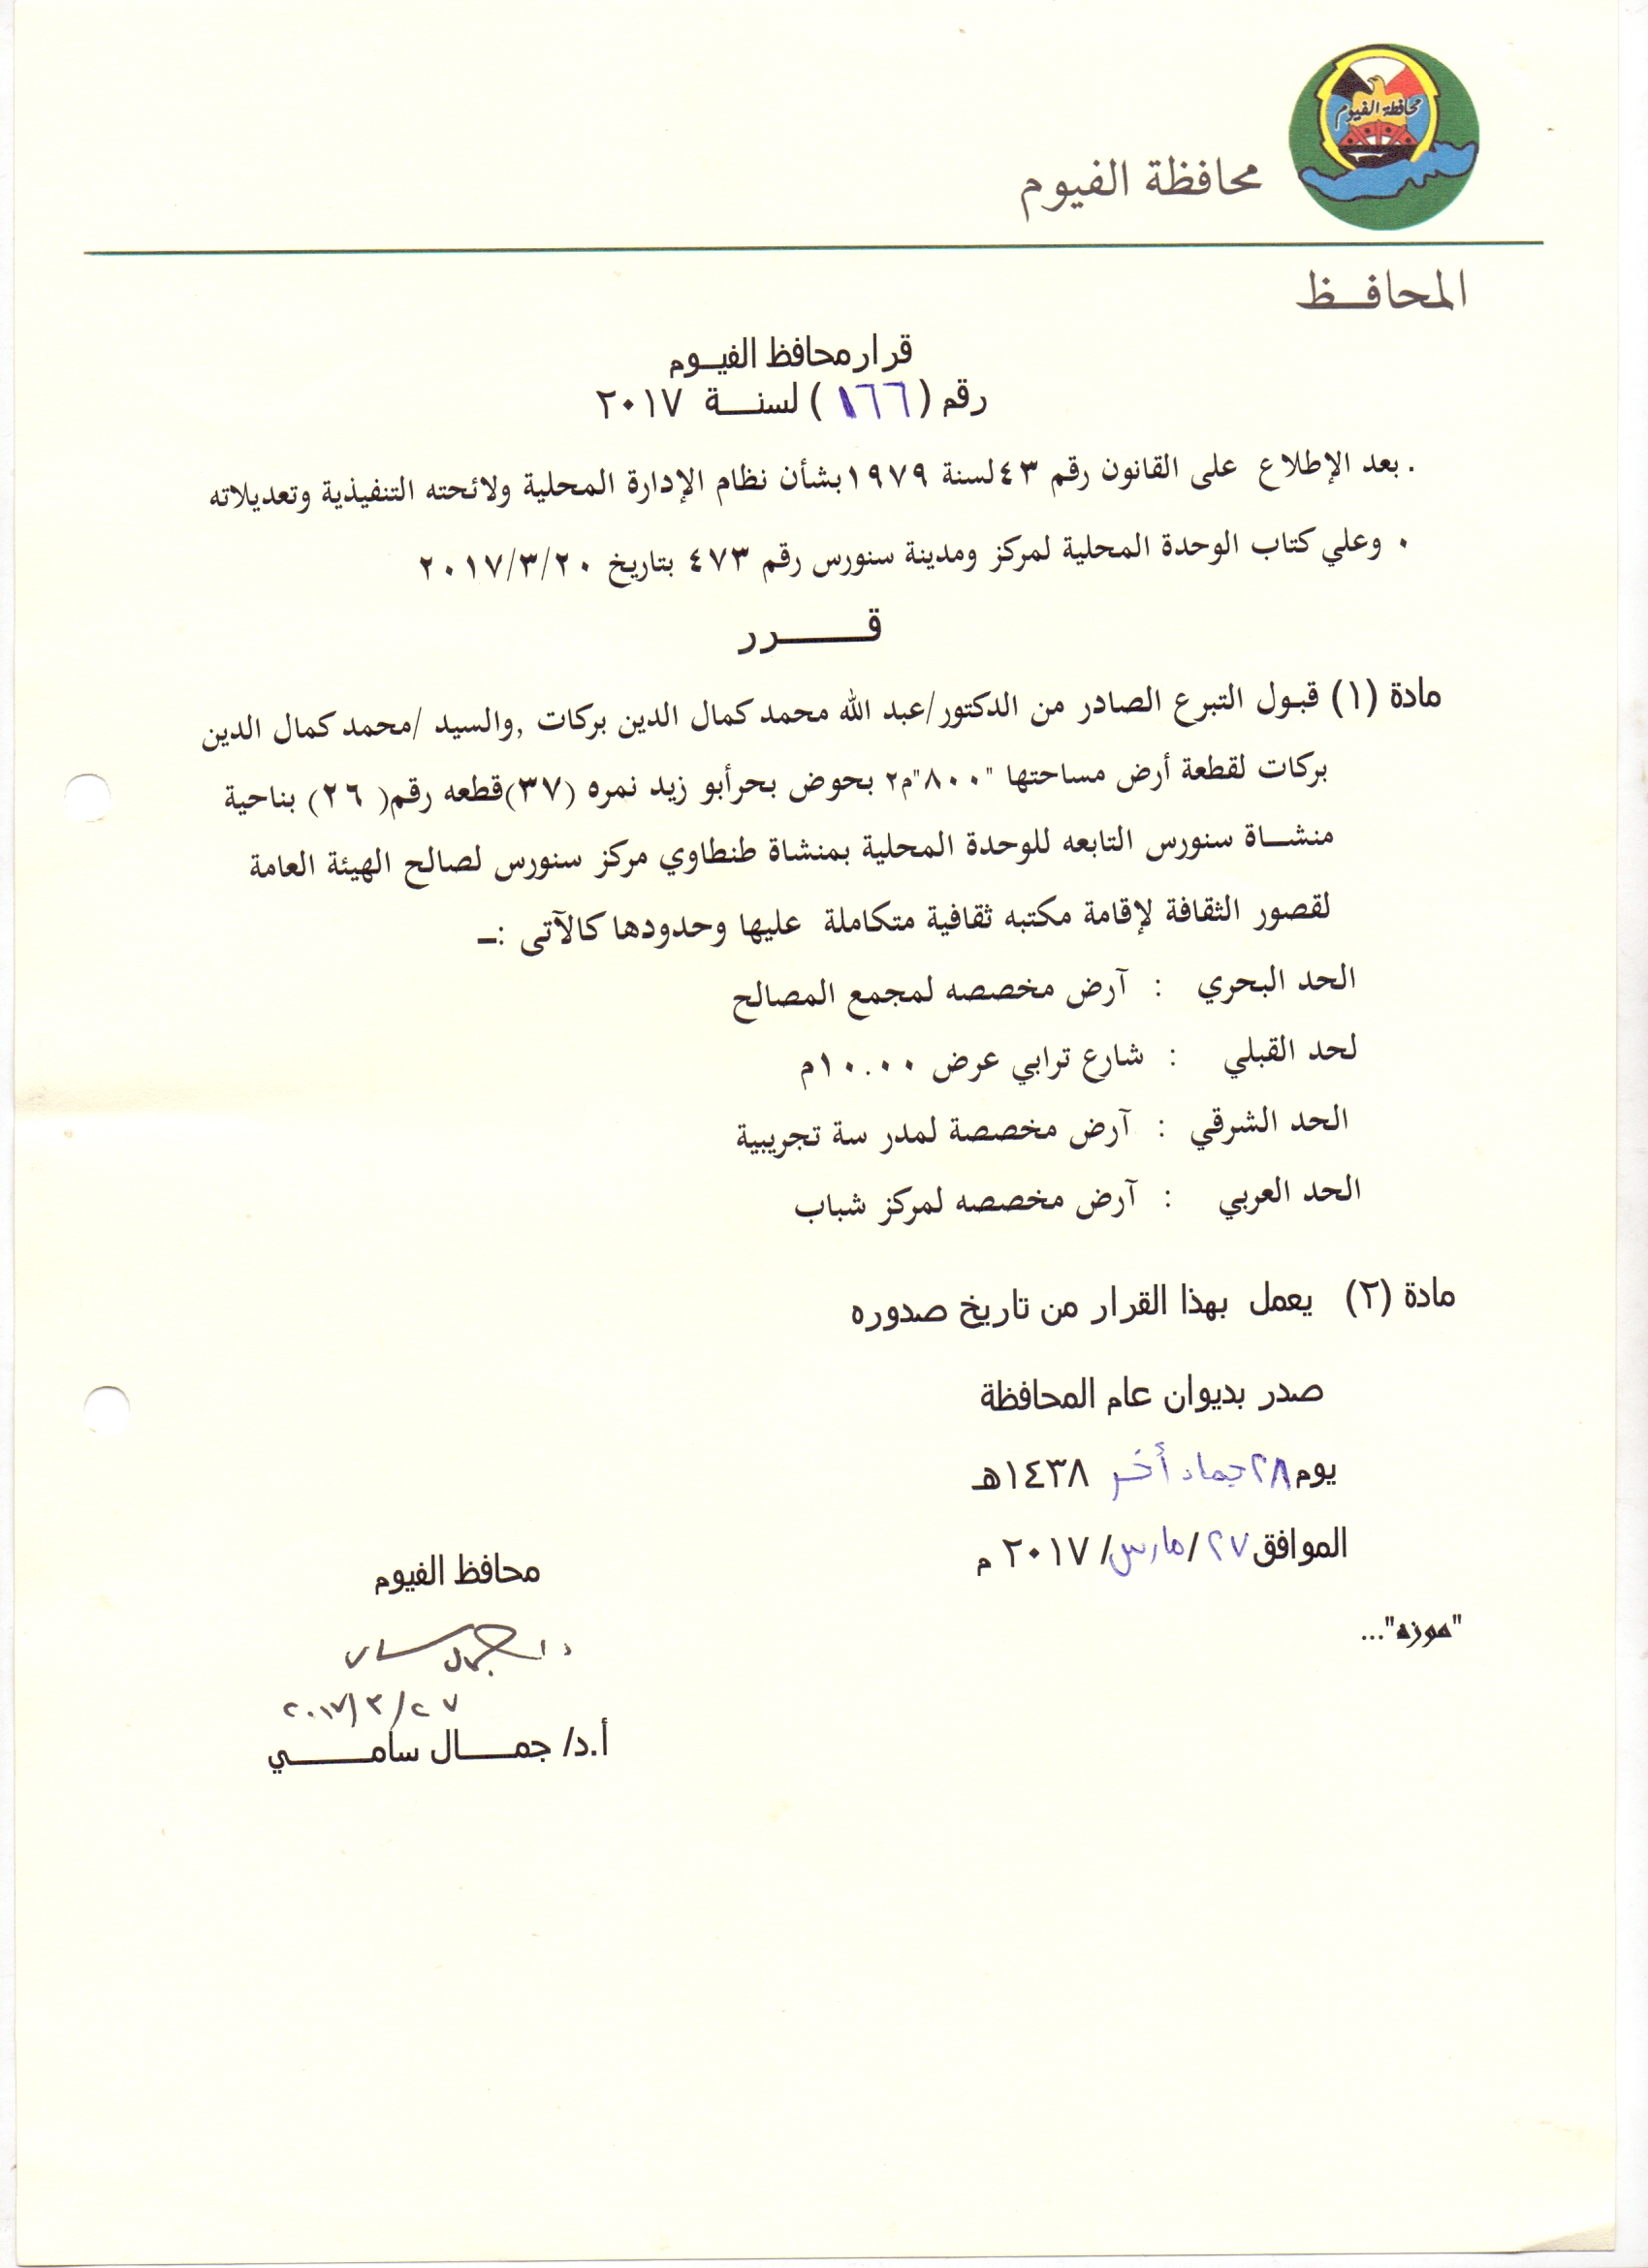 محافظة الفيوم
محافظة الفيوم
المحافــظ
قرار محافظ الفيــوم
رقم ( ١٦٦ ) لسنـــة ٢٠١٧
. بعد الإطلاع على القانون رقم ٤٣ لسنة ١٩٧٩ بشأن نظام الإدارة المحلية ولائحته التنفيذية وتعديلاته
. وعلي كتاب الوحدة المحلية لمركز ومدينة سنورس رقم ٤٧٣ بتاريخ ٢٠١٧/٣/٢٠
قـــــــرر
مادة (١) قبـول التبرع الصادر من الدكتور/عبد الله محمد كمال الدين بركات ,والسيد /محمد كمال الدين
بركات لقطعة أرض مساحتها "٨٠٠"م٢ بحوض بحرأبو زيد نمره (٣٧)قطعه رقم( ٢٦) بناحية
منشـــاة سنورس التابعه للوحدة المحلية بمنشاة طنطاوي مركز سنورس لصالح الهيئة العامة
لقصور الثقافة لإقامة مكتبه ثقافية متكاملة عليها وحدودها كالآتى :ـ
الحد البحري : آرض مخصصه لمجمع المصالح
لحد القبلي : شارع ترابي عرض ١٠.٠٠م
الحد الشرقي : آرض مخصصة لمدر سة تجريبية
الحد العربي : آرض مخصصه لمركز شباب
مادة (٢) يعمل بهذا القرار من تاريخ صدوره
صدر بديوان عام المحافظة
يوم ٢٨ جماد أخر ١٤٣٨هـ
الموافق ٢٧/مارس/ ٢٠١٧ م
"موزه"...
محافظ الفيوم
٢٠١٧/٣/٢٧
أ.د/ جمـــــال سامـــــــــي